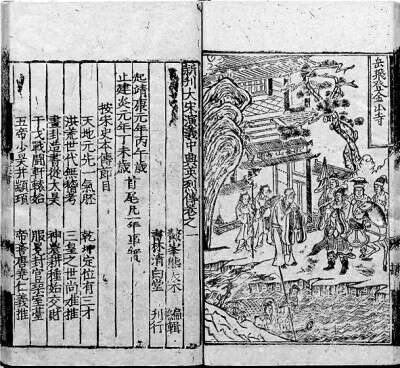 岳飛登金山寺
新刋大宋演義中興英烈傳卷之一
鰲峯熊大木 編輯
書林清白堂 刊行
起靖康元年丙午歲
止建炎元年丁未歲
首尾凡一年事實
按宋史本傳節目
天地元先一氣胚 乾坤定位有三才
洪荒世代無稽考 三皇之世尚难推
畫卦造書從太昊 神農耕種始交財
干戈戰鬪軒轅始 服冕封官宰室臺
五帝少昊并顓頊 帝嚳唐堯仁義推